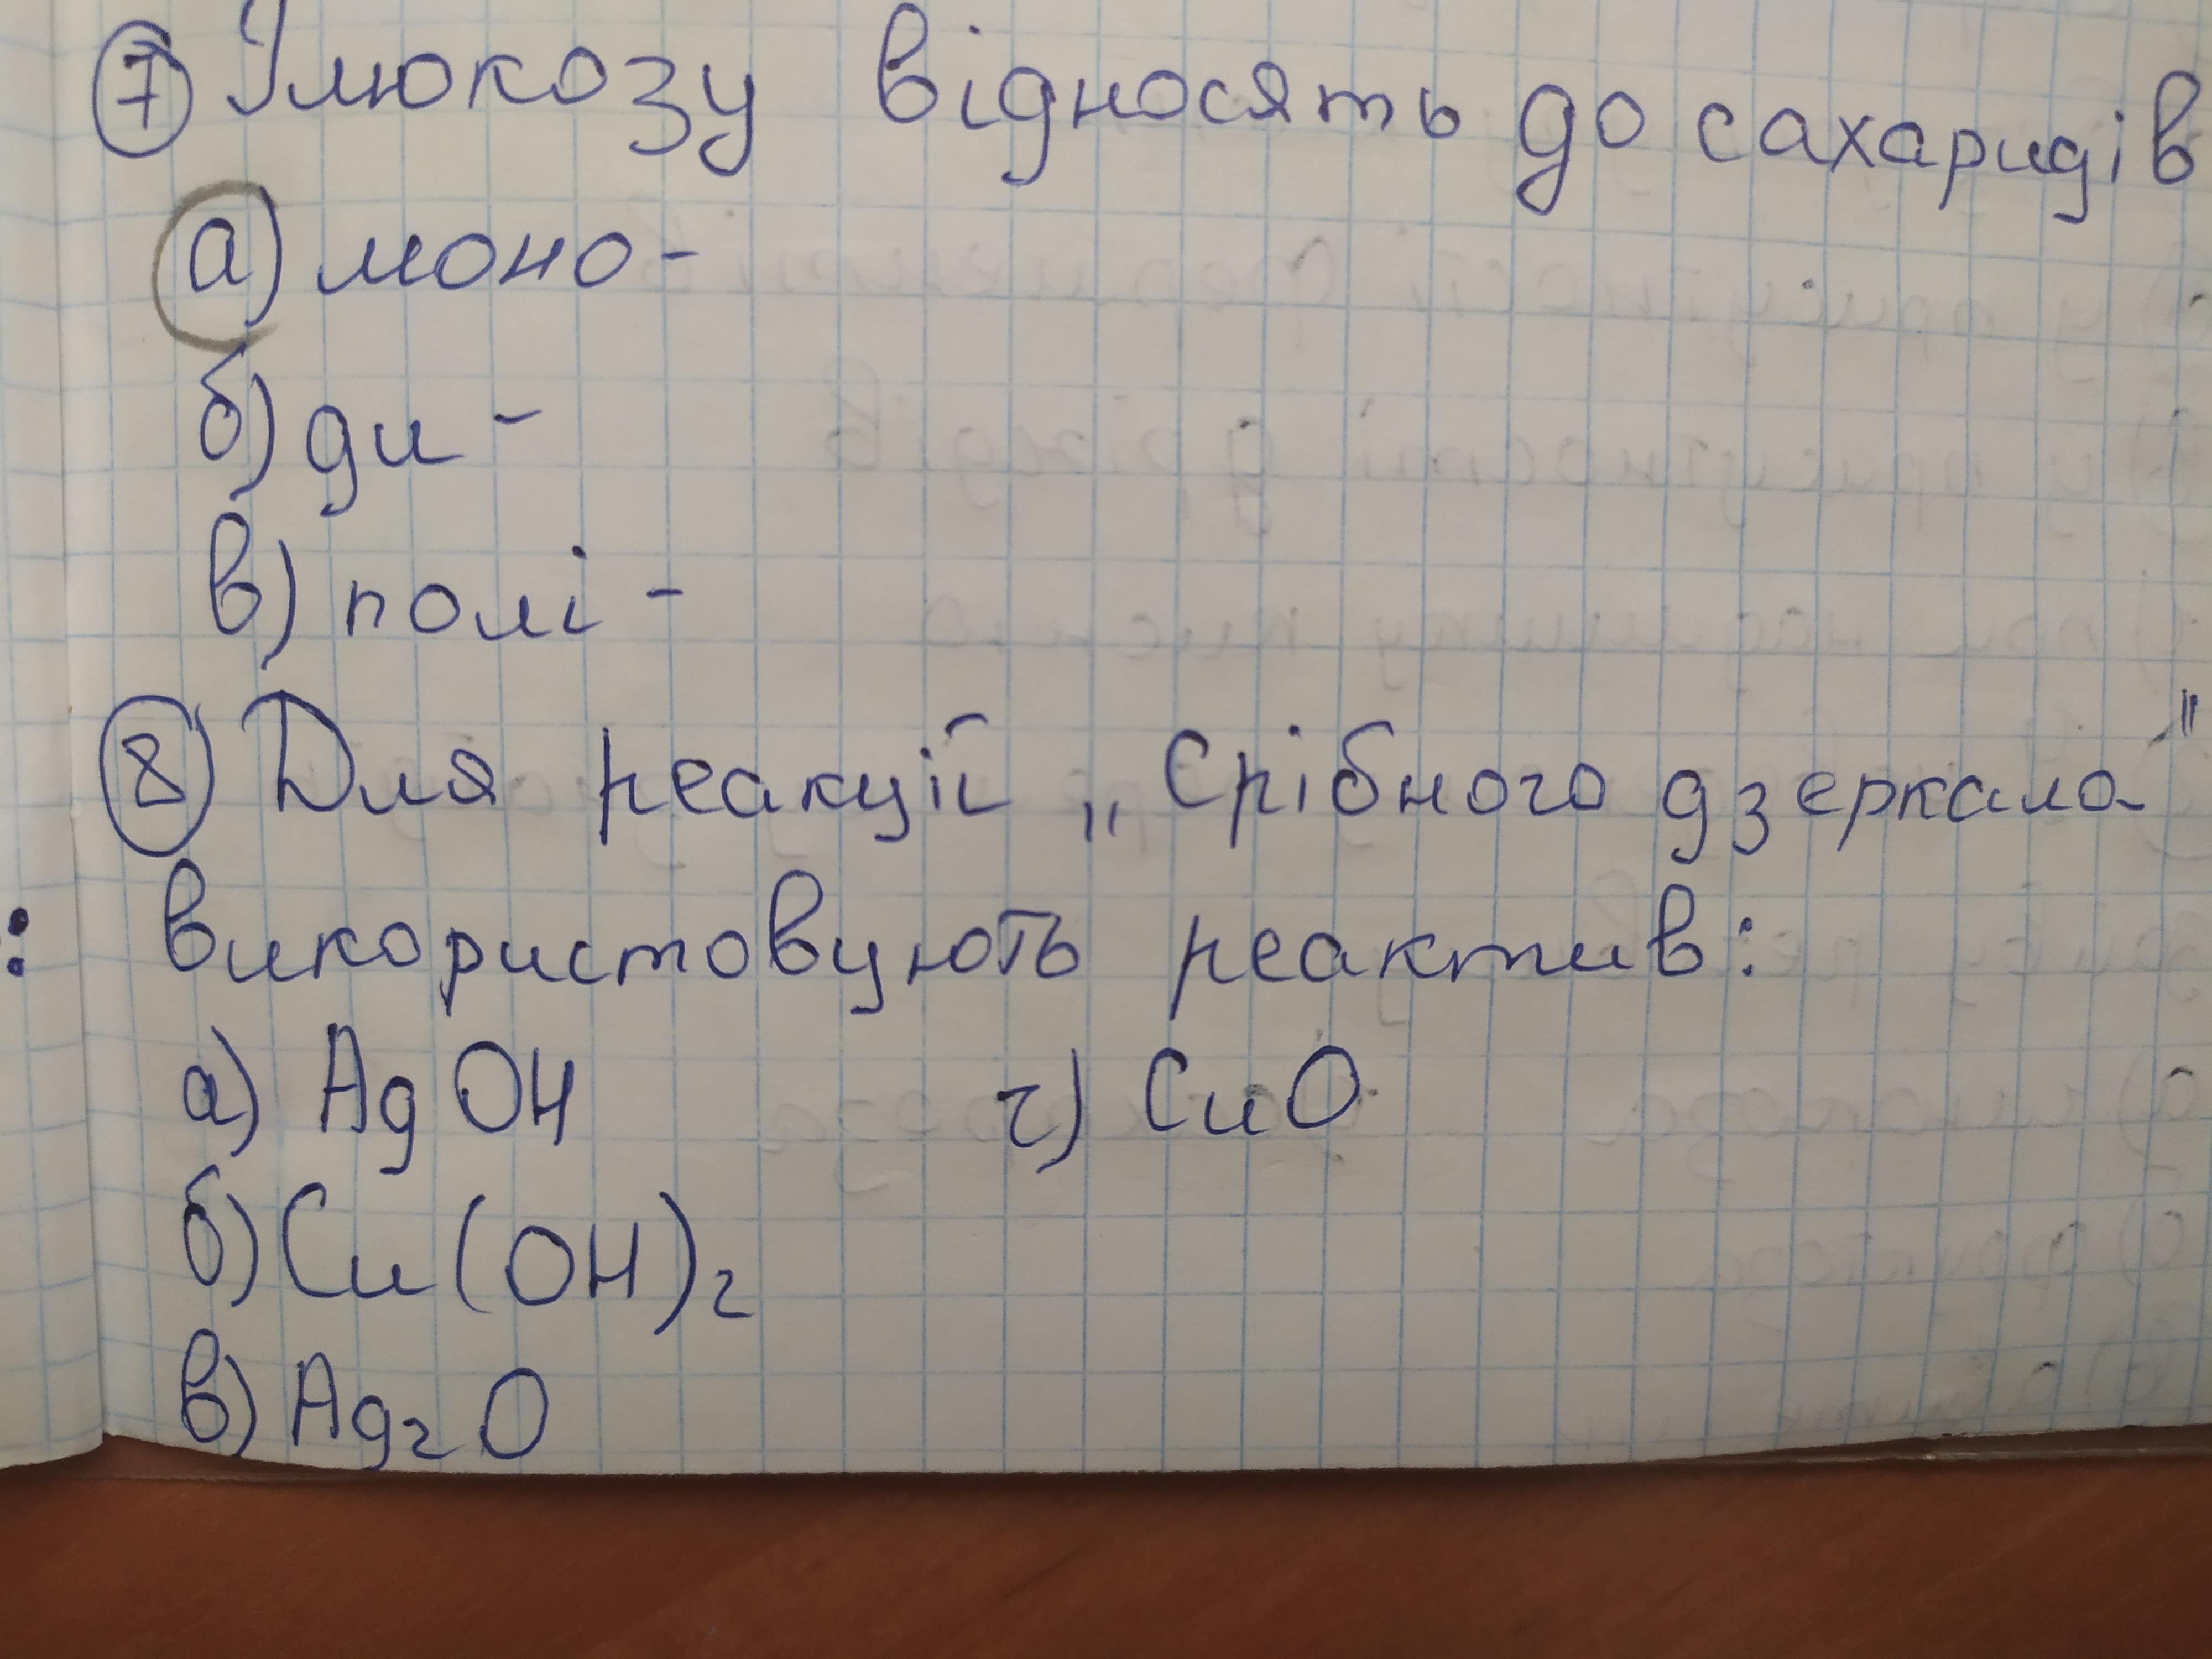 7 Глюкозу відносять до сахаридів
а) моно-
б) ди-
в) полі-
8 Для реакції „Срібного дзеркала"
: використовують реактив:
а) AgOH г) CuO
б) Cu(OH)₂
в) Ag₂O